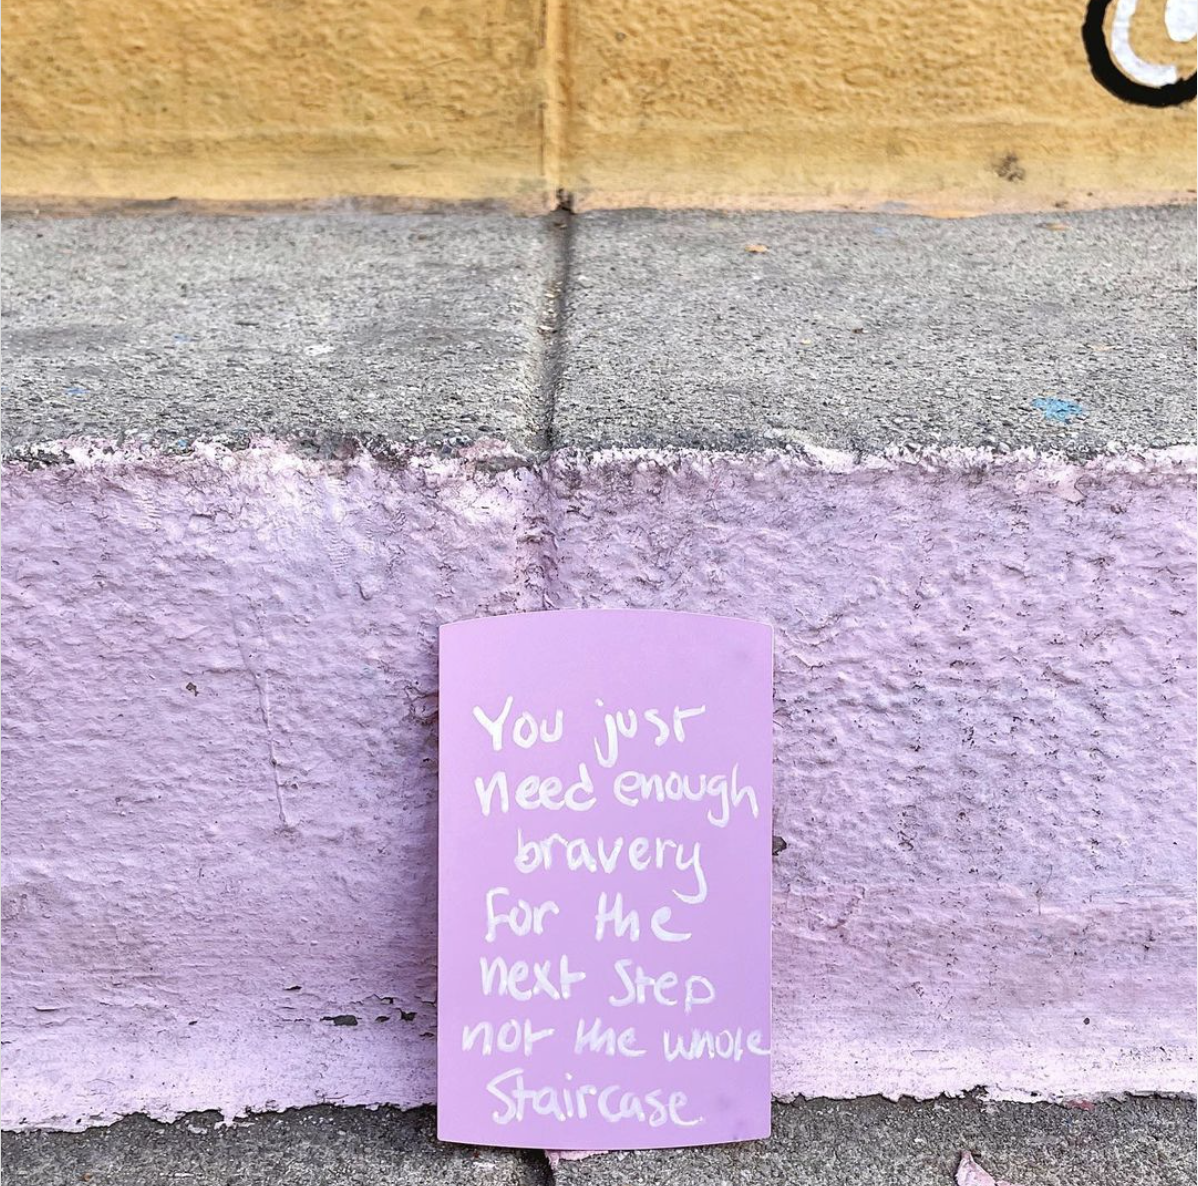 You just
need enough
bravery
For the
next Step
not the whole
Staircase